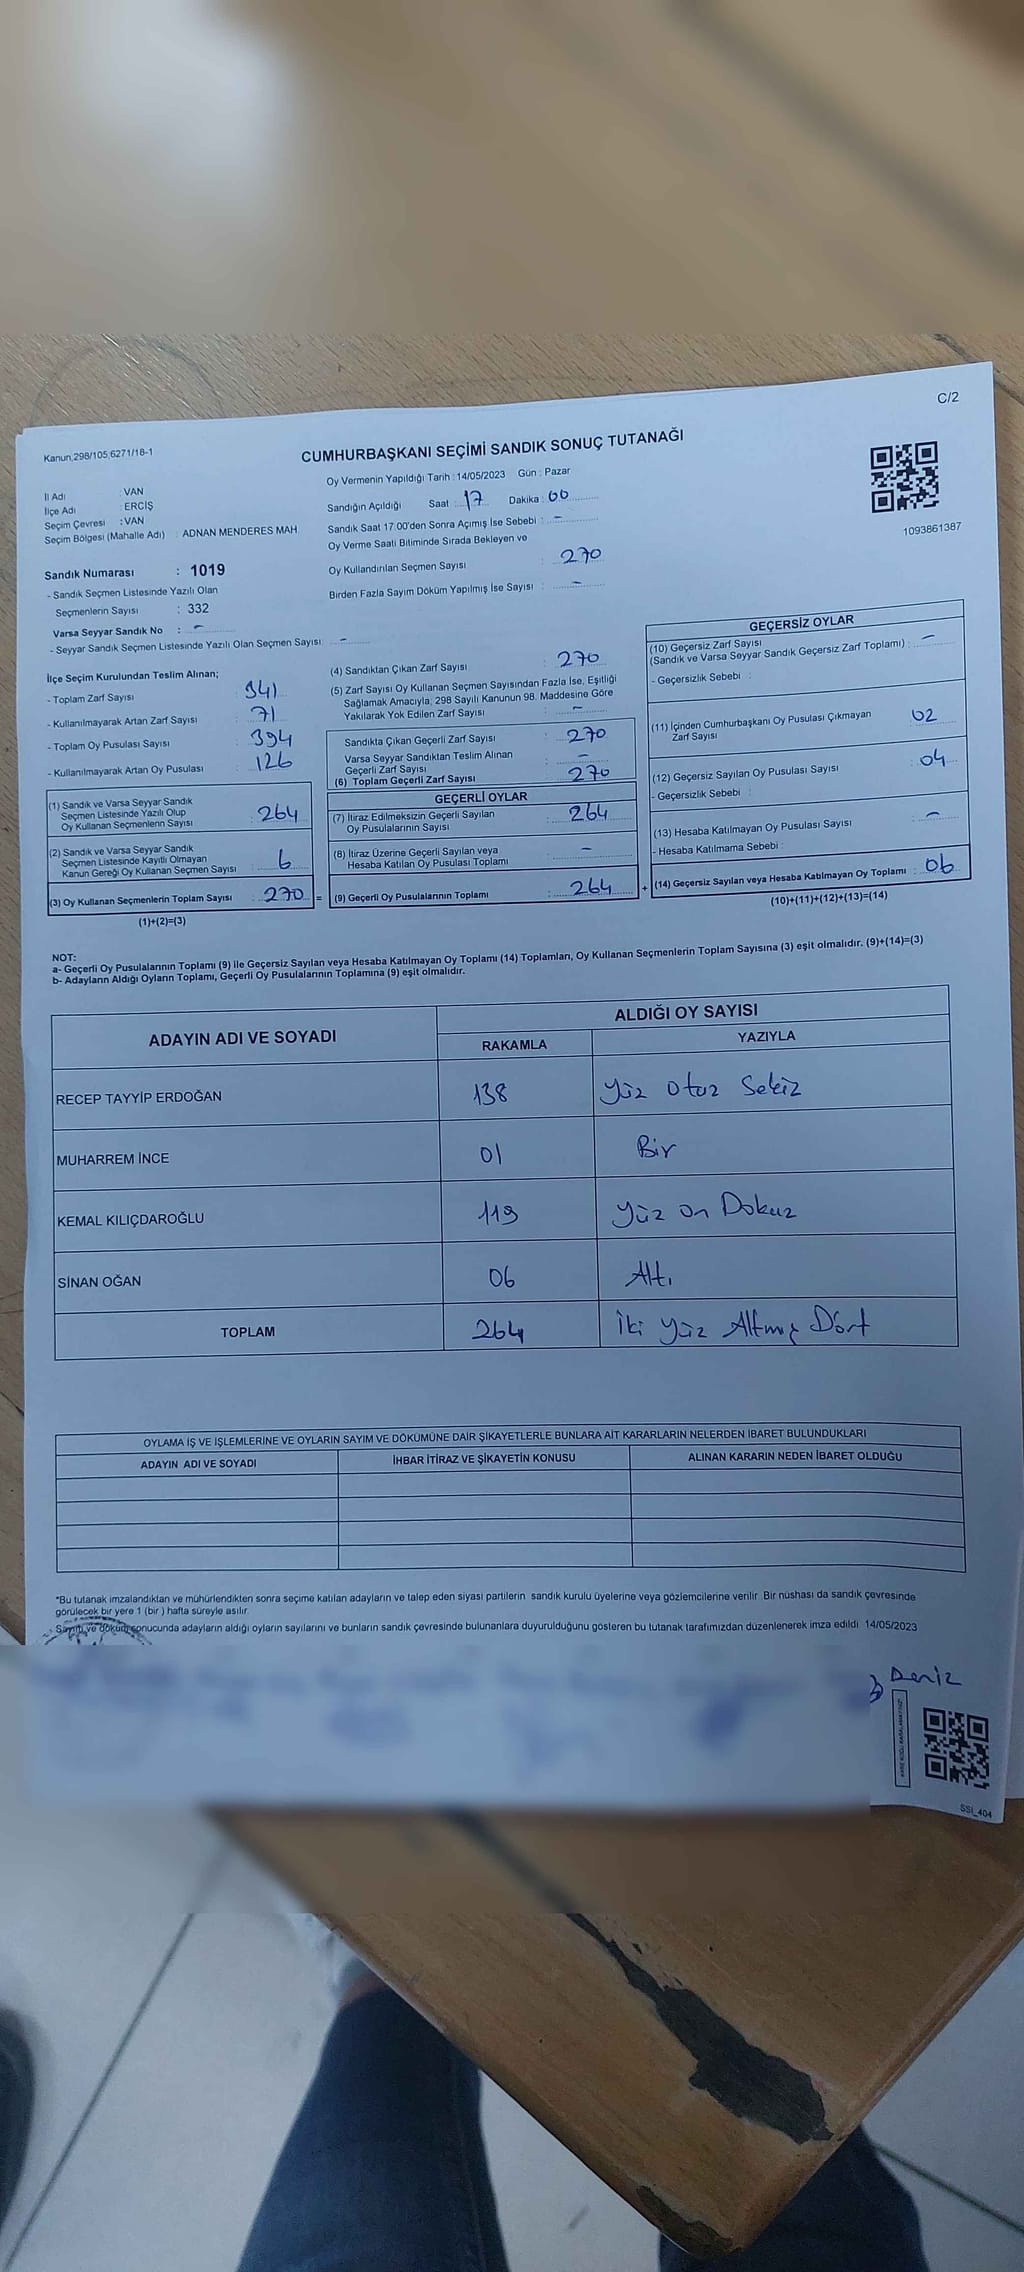 C/2
Kanun,298/105,6271/18-1
CUMHURBAŞKANI SEÇİMİ SANDIK SONUÇ TUTANAĞI
İl Adı : VAN
İlçe Adı : ERCİŞ
Seçim Çevresi : VAN
Seçim Bölgesi (Mahalle Adı) : ADNAN MENDERES MAH.
Oy Vermenin Yapıldığı Tarih : 14/05/2023 Gün : Pazar
Sandığın Açıldığı Saat : 17 Dakika : 00
Sandık Saat 17:00'den Sonra Açımış İse Sebebi : -
Oy Verme Saati Bitiminde Sırada Bekleyen ve
Oy Kullandırılan Seçmen Sayısı : 270
Birden Fazla Sayım Döküm Yapılmış İse Sayısı : -
1093861387
Sandık Numarası : 1019
- Sandık Seçmen Listesinde Yazılı Olan
Seçmenlerin Sayısı : 332
Varsa Seyyar Sandık No : -
- Seyyar Sandık Seçmen Listesinde Yazılı Olan Seçmen Sayısı: -
İlçe Seçim Kurulundan Teslim Alınan;
- Toplam Zarf Sayısı : 341
- Kullanılmayarak Artan Zarf Sayısı : 71
- Toplam Oy Pusulası Sayısı : 394
- Kullanılmayarak Artan Oy Pusulası : 126
(1) Sandık ve Varsa Seyyar Sandık
Seçmen Listesinde Yazılı Olup
Oy Kullanan Seçmenlerin Sayısı : 264
(2) Sandık ve Varsa Seyyar Sandık
Seçmen Listesinde Kayıtlı Olmayan
Kanun Gereği Oy Kullanan Seçmen Sayısı : 6
(3) Oy Kullanan Seçmenlerin Toplam Sayısı : 270 =
(1)+(2)=(3)
(4) Sandıktan Çıkan Zarf Sayısı : 270
(5) Zarf Sayısı Oy Kullanan Seçmen Sayısından Fazla İse, Eşitliği
Sağlamak Amacıyla; 298 Sayılı Kanunun 98. Maddesine Göre
Yakılarak Yok Edilen Zarf Sayısı : -
Sandıkta Çıkan Geçerli Zarf Sayısı : 270
Varsa Seyyar Sandıktan Teslim Alınan
Geçerli Zarf Sayısı : -
(6) Toplam Geçerli Zarf Sayısı : 270
GEÇERLİ OYLAR
(7) İtiraz Edilmeksizin Geçerli Sayılan
Oy Pusulalarının Sayısı : 264
(8) İtiraz Üzerine Geçerli Sayılan veya
Hesaba Katılan Oy Pusulası Toplamı : -
(9) Geçerli Oy Pusulalarının Toplamı : 264 +
GEÇERSİZ OYLAR
(10) Geçersiz Zarf Sayısı
(Sandık ve Varsa Seyyar Sandık Geçersiz Zarf Toplamı) : -
- Geçersizlik Sebebi :
(11) İçinden Cumhurbaşkanı Oy Pusulası Çıkmayan
Zarf Sayısı : 02
(12) Geçersiz Sayılan Oy Pusulası Sayısı : 04
- Geçersizlik Sebebi :
(13) Hesaba Katılmayan Oy Pusulası Sayısı : -
- Hesaba Katılmama Sebebi :
(14) Geçersiz Sayılan veya Hesaba Katılmayan Oy Toplamı : 06
(10)+(11)+(12)+(13)=(14)
NOT:
a- Geçerli Oy Pusulalarının Toplamı (9) ile Geçersiz Sayılan veya Hesaba Katılmayan Oy Toplamı (14) Toplamları, Oy Kullanan Seçmenlerin Toplam Sayısına (3) eşit olmalıdır. (9)+(14)=(3)
b- Adayların Aldığı Oyların Toplamı, Geçerli Oy Pusulalarının Toplamına (9) eşit olmalıdır.
ADAYIN ADI VE SOYADI
ALDIĞI OY SAYISI
RAKAMLA YAZIYLA
RECEP TAYYİP ERDOĞAN 138 Yüz Otuz Sekiz
MUHARREM İNCE 01 Bir
KEMAL KILIÇDAROĞLU 119 Yüz On Dokuz
SİNAN OĞAN 06 Altı
TOPLAM 264 İki Yüz Altmış Dört
OYLAMA İŞ VE İŞLEMLERİNE VE OYLARIN SAYIM VE DÖKÜMÜNE DAİR ŞİKAYETLERLE BUNLARA AİT KARARLARIN NELERDEN İBARET BULUNDUKLARI
ADAYIN ADI VE SOYADI İHBAR İTİRAZ VE ŞİKAYETİN KONUSU ALINAN KARARIN NEDEN İBARET OLDUĞU
*Bu tutanak imzalandıktan ve mühürlendikten sonra seçime katılan adayların ve talep eden siyasi partilerin sandık kurulu üyelerine veya gözlemcilerine verilir. Bir nüshası da sandık çevresinde
görülecek bir yere 1 (bir ) hafta süreyle asılır.
- Sayım ve döküm sonucunda adayların aldığı oyların sayılarını ve bunların sandık çevresinde bulunanlara duyurulduğunu gösteren bu tutanak tarafımızdan düzenlenerek imza edildi 14/05/2023
Deniz
SSİ_404